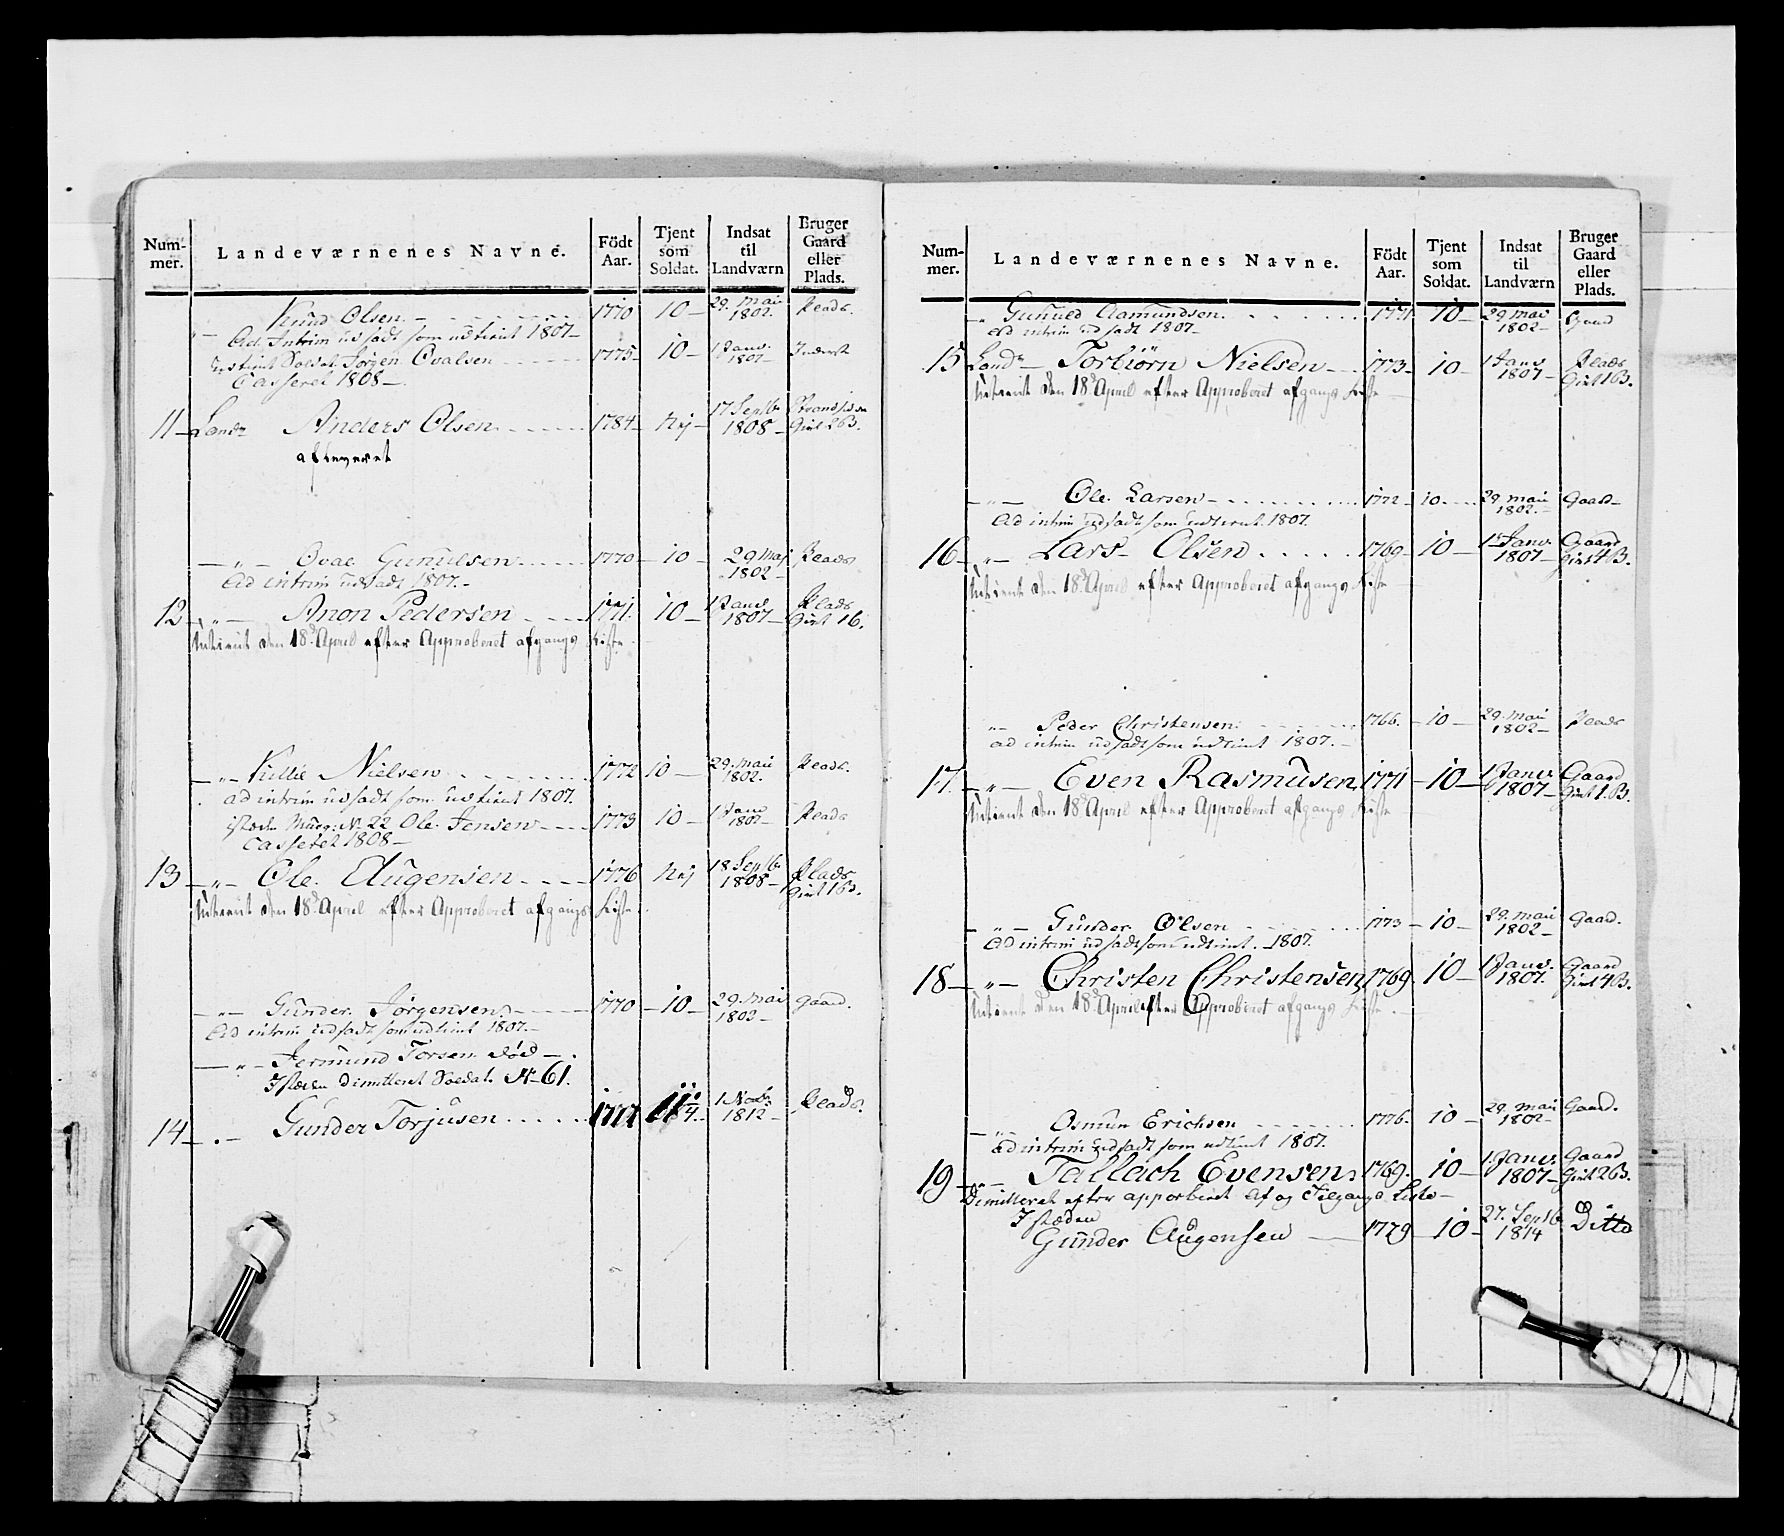 Num-mer. Landeværnenes Navne. Födt Aar. Tjent som Soldat. Indsat til Landværn Bruger Gaard eller Plads.
— Knud Olsen 1770 10 — 29. Mai 1802. Plads.
Ad Intrim udsadt som udtient 1807 —
Jørgen Ovalsen 1775 — 10 — 1 Janv. 1807 — Inderst
Casseret 1808 —
11 — Landv Anders Olsen 1784 — Nej — 17 Septb. 1808 — Strandsidder Givt 2 B.
afleveret
— " — Ovae Gunulsen 1770 — 10 — 29 Maj 1802 — Plads
Ad intrim udsadt 1807. —
12 — " — Anon Pedersen 1771. 10 — 1 Janv 1807 — Plads Givt 1 B.
Udtient den 18d April efter Approberet afgangs Liste
— " — Killie Nielsen 1772 10 — 29. Mai 1802. Plads.
ad intrim udsadt som udtient 1807.
istæden Nr. 22 Ole Jensen 1773 10 — 1 Janv 1802 — Plads
Casseret 1808 —
13 — " — Ole Augensen 1776 Nej 18 Septb. 1808 — Plads Givt 1 B.
Udtient den 18d April efter Approberet afgangs Liste
— " — Gunder Jørgensen 1770 — 10 — 29. Mai 1802 — Gaard.
Ad intrim udsadt som udtient 1807. —
— " — Jermund Torsen død —.
Istæden Dimitteret Soldat No 61.
14 — . — Gunder Torjusen 1777 11 1/4 — 1 Novb. 1812 — Plads.
Num-mer. Landeværnenes Navne. Födt Aar. Tjent som Soldat. Indsat til Landværn Bruger Gaard eller Plads.
„ Gunuld Aamundsen 1771 10 — 29 Mai 1802 —
Ad intrim udsadt 1807 —
15 Landv — Torbiörn Nielsen 1773 — 10 — 1 Janv 1807 — Plads Givt 1 B.
Udtient den 18d April efter Approberet afgangs Liste
— " — Ole Larsen 1772 — 10 — 29. Mai 1802. — Gaard —
Ad intrim udsadt som udtient 1807.
16 — " — Lars Olsen 1769 — 10 — 1 Janv. 1807 — Gaard Givt 4 B.
Udtient den 18d April efter Approberet afgangs Liste
" — Peder Christensen 1766. — 10 — 29. Mai 1802 — Plads
ad intrim udsadt som udtient 1807. —
17. — " — Even Rasmusen 1771 — 10 — 1 Janv. 1807 — Gaard Givt 1. B.
Udtient den 18d April efter Approberet afgangs Liste
— " — Gunder Olsen 1773 — 10 — 29. Mai 1802 — Gaard.
Ad intrim udsadt som udtient. 1807.
18 — " — Christen Christensen 1769. 10 — 1 Janv. 1807. Gaard Givt 4 B.
Udtient den 18d April efter Approberet afgangs Liste
— " — Osmun Erichsen 1776. 10 — 29. Mai 1802 — Gaard.
ad intrim udsadt som udtient 1807.
19 — " — Tallach Evensen 1769. 10 — 1 Janv. 1807 — Gaard Givt 2 B.
Dimitteret efter approberet Af og Tilgangs Liste —
Istæden
Gunder Augensen 1779 — 10 — 27. Septb 1814 Ditto